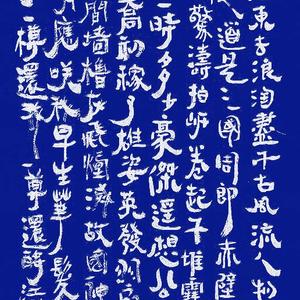 東去浪淘盡千古風流人物
人道是三國周郎赤壁
驚濤拍岍卷起千堆雪
一時多少豪傑遥想公
喬初嫁了雄姿英發羽
間墻櫓灰飛煙滅故國神
應咲我早生華髮
樽還酹一尊還酹江